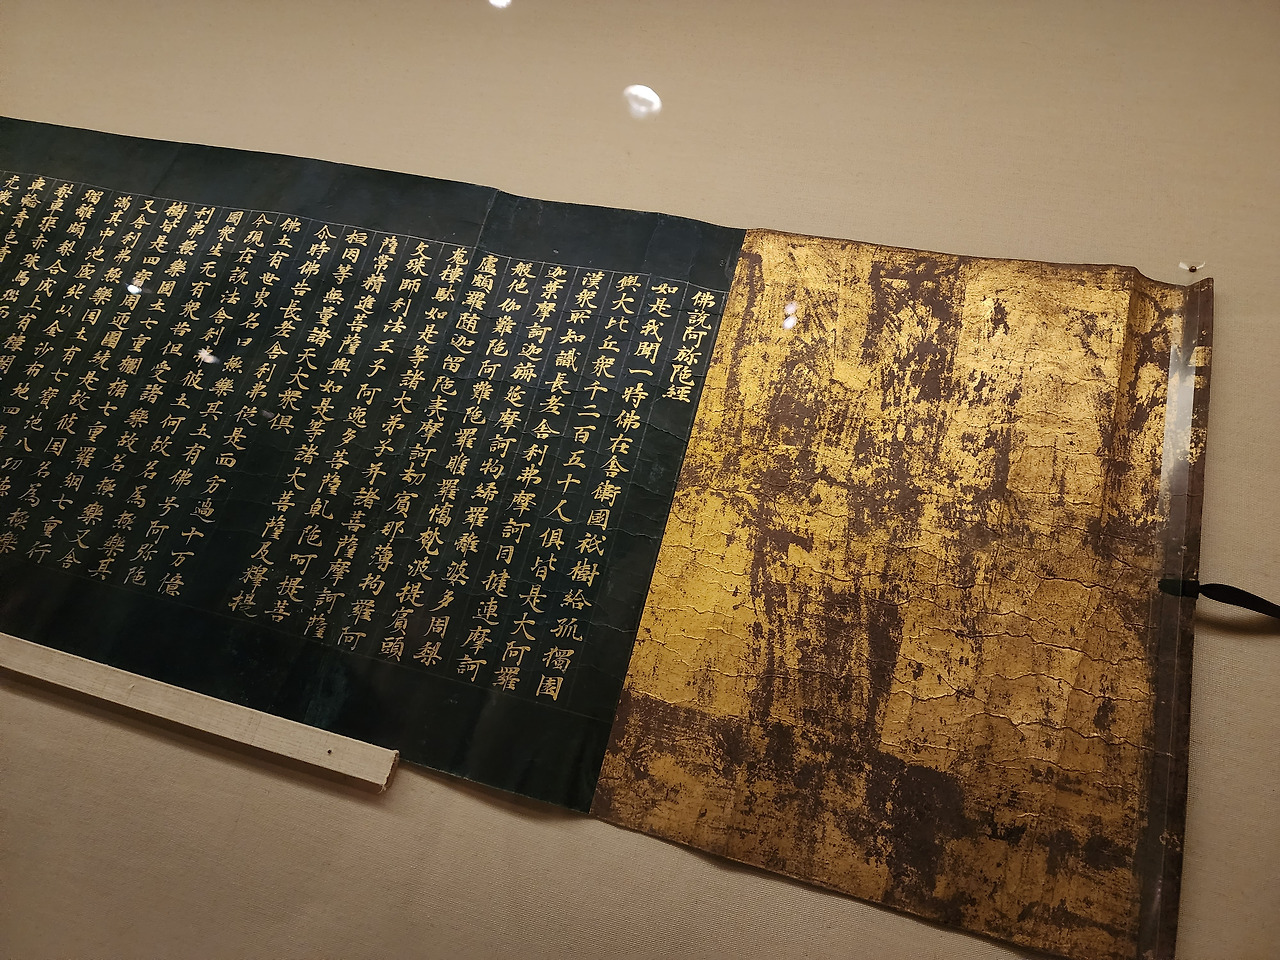 佛說阿弥陁經
如是我聞一時佛在舍衛國祇樹給孤獨園
與大比丘衆千二百五十人俱皆是大阿羅
漢衆所知識長老舍利弗摩訶目揵連摩訶
迦葉摩訶迦旃延摩訶拘絺羅離婆多周梨
般他伽難陁阿難陁羅睺羅憍梵波提賓頭
盧頗羅随迦留陁夷摩訶劫賓那薄拘羅阿
㝹樓馱如是等諸大弟子并諸菩薩摩訶薩
文殊師利法王子阿逸多菩薩乾陁呵提菩
薩常精進菩薩與如是等諸大菩薩及釋提
桓因等無量諸天大衆俱
尒時佛告長老舍利弗從是西方過十万億
佛土有世界名曰極樂其土有佛号阿弥陁
今現在説法舍利弗彼土何故名爲極樂其
國衆生无有衆苦但受諸樂故名極樂又舍
利弗極樂國土七重欄楯七重羅網七重行
樹皆是四寳周迊圍繞是故彼國名爲極樂
又舍利弗極樂國土有七寳池八功德
滿其中池底純以金沙布地四
瑠離頗梨合成上有樓閣
梨車璖赤珠馬瑙而
車輪青色青